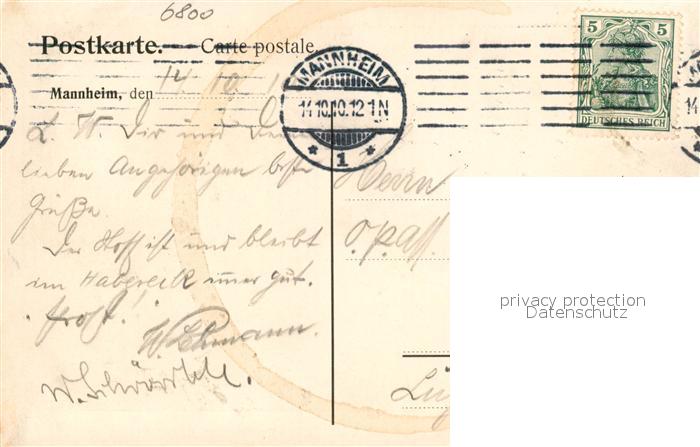 6800
Postkarte. — Carte postale.
Mannheim, den 14 10
MANNHEIM
14.10.10.12-1N
* 1 *
5 5
DEUTSCHES REICH
L. W. Dir und Deinen
lieben Angehörigen beste
Grüße.
Der Stoff ist und bleibt
im Habereck immer gut.
Prost!
W. Lehmann.
W.
Herrn
privacy protection
Datenschutz